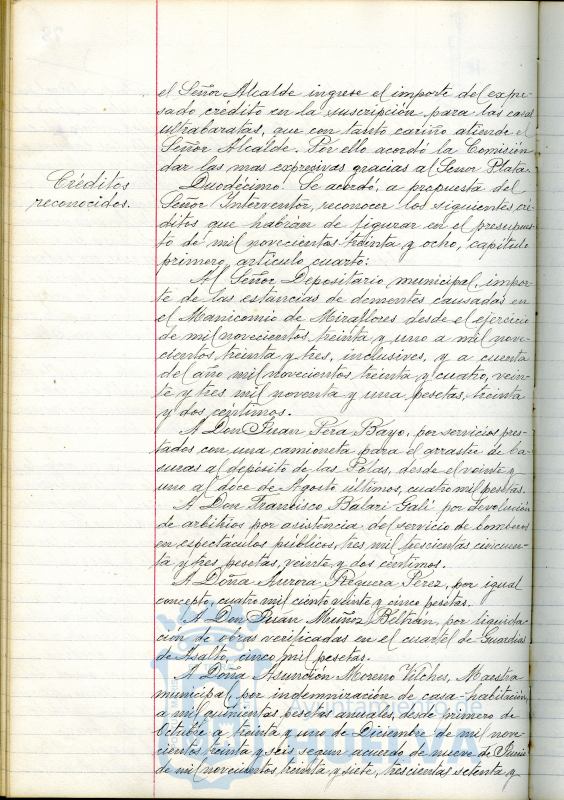 el Señor Alcalde ingrese el importe del expre-
sado crédito en la suscripción para las casas
ultrabaratas, que con tanto cariño atiende el
Señor Alcalde. Por ello acordó la Comisión
dar las mas expresivas gracias al Señor Plata.
Créditos
reconocidos.
Duodécimo: Se acordó, a propuesta del
Señor Interventor, reconocer los siguientes cré-
ditos que habrán de figurar en el presupues-
to de mil novecientos treinta y ocho, capítulo
primero, artículo cuarto:
Al Señor Depositario municipal, impor-
te de las estancias de dementes causadas en
el Manicomio de Miraflores desde el ejercicio
de mil novecientos treinta y uno a mil nove-
cientos treinta y tres, inclusives, y a cuenta
del año mil novecientos treinta y cuatro, vein-
te y tres mil noventa y una pesetas, treinta
y dos centimos.
A Don Juan Pera Bayo, por servicios pres-
tados con una camioneta para el arrastre de ba-
suras al depósito de las Polas, desde el veinte y
uno al doce de Agosto últimos, cuatro mil pesetas.
A Don Francisco Balari Gali por devolución
de arbitrios por asistencia del servicio de bomberos
en espectáculos públicos, tres mil trescientas cincuen-
ta y tres pesetas, veinte y dos centimos.
A Doña Aurora Reguera Perez, por igual
concepto, cuatro mil ciento veinte y cinco pesetas.
A Don Juan Muñoz Beltrán, por liquida-
ción de obras verificadas en el cuartel de Guardias
de Asalto, cinco mil pesetas.
A Doña Asunción Moreno Vilches, Maestra
municipal por indemnización de casa-habitación,
a mil quinientas pesetas anuales, desde primero de
Octubre a treinta y uno de Diciembre de mil nove-
cientos treinta y seis segun acuerdo de nueve de Junio
de mil novecientos treinta y siete, trescientas setenta y
Ayuntamiento de
HUELVA